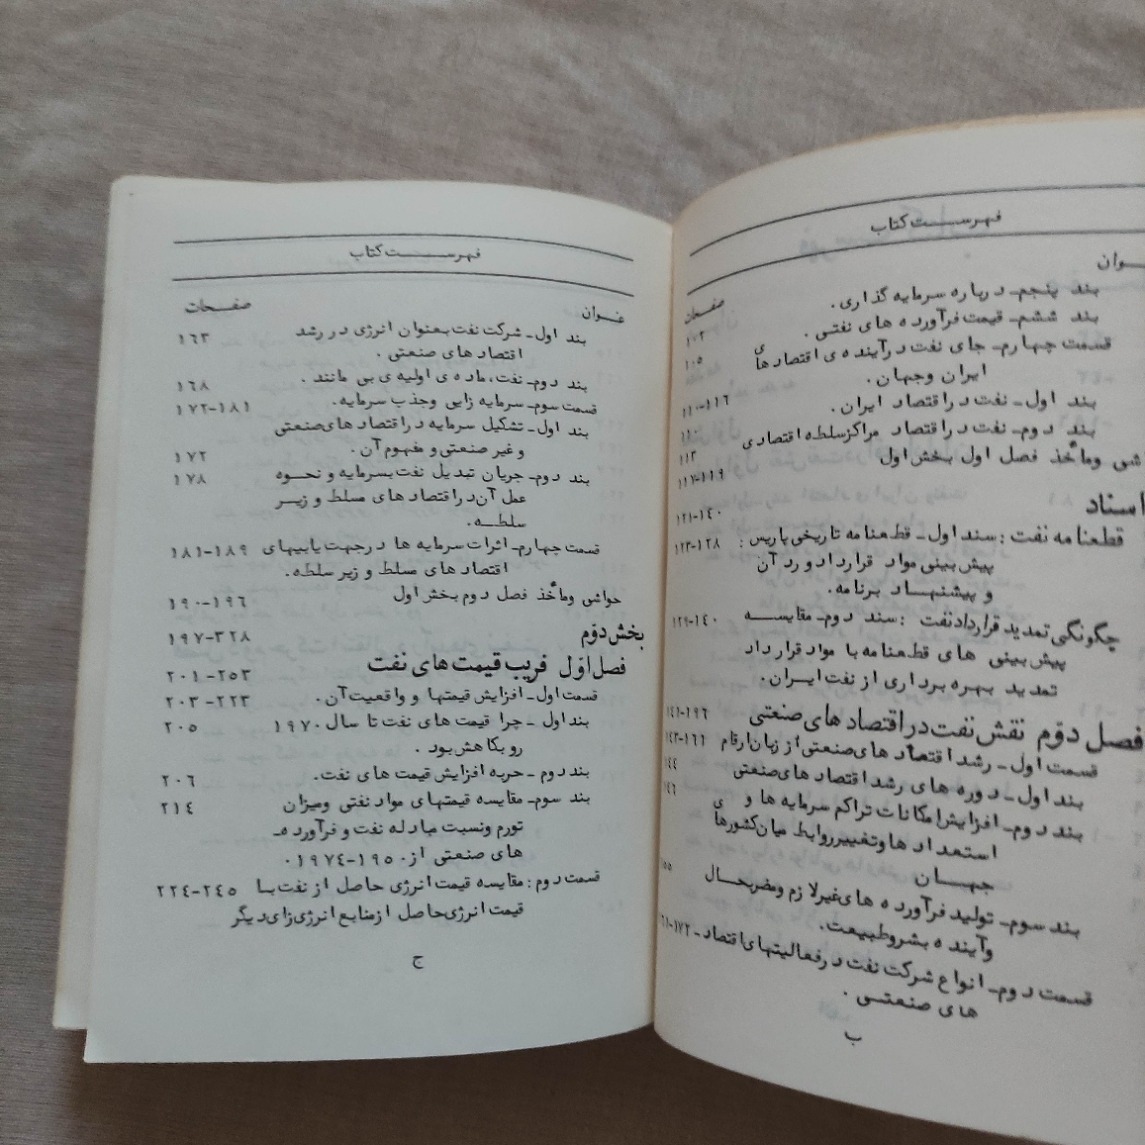 فهرست کتاب
ـوان
صفحات
بند پنجم ـ درباره سرمایه گذاری.
۱۰۲ بند ششم ـ قیمت فرآورده های نفتی.
۱۰۵ قسمت چهارم ـ جای نفت در آینده ی اقتصادهای
ایران وجهان.
۱۱۰-۱۱۶
بند اول ـ نفت در اقتصاد ایران. ۱۱۰
بند دوم ـ نفت در اقتصاد مراکز سلطه اقتصادی ۱۱۳
شی ومآخذ فصل اول بخش اول ۱۱۷-۱۱۹
اسناد ۱۲۱-۱۴۰
قطعنامه نفت : سند اول ـ قطعنامه تاریخی پاریس: ۱۲۳-۱۲۸
پیش بینی مواد قرارداد و رد آن
و پیشنهاد برنامه.
چگونگی تمدید قرارداد نفت : سند دوم ـ مقایسه ۱۲۹-۱۴۰
پیش بینی های قطعنامه با مواد قرارداد
تمدید بهره برداری از نفت ایران.
فصل دوم نقش نفت در اقتصادهای صنعتی ۱۴۱-۱۹۶
قسمت اول ـ رشد اقتصادهای صنعتی از زبان ارقام ۱۴۳-۱۶۶
بند اول ـ دوره های رشد اقتصادهای صنعتی ۴۴
بند دوم ـ افزایش امکانات تراکم سرمایه ها و ی ۴۶
استعدادها وتغییر روابط میان کشورهای
جهان
بند سوم ـ تولید فرآورده های غیر لازم ومضر بحال ۵۵
وآینده بشر وطبیعت.
قسمت دوم ـ انواع شرکت نفت در فعالیتهای اقتصاد ـ ۶۱-۱۷۲
های صنعتی.
ب
فهرست کتاب
عنوان صفحات
بند اول ـ شرکت نفت بعنوان انرژی در رشد ۱۶۳
اقتصادهای صنعتی.
بند دوم ـ نفت، ماده ی اولیه ی بی مانند. ۱۶۸
قسمت سوم ـ سرمایه زایی وجذب سرمایه. ۱۷۲-۱۸۱
بند اول ـ تشکیل سرمایه در اقتصادهای صنعتی
وغیر صنعتی و مفهوم آن. ۱۷۲
بند دوم ـ جریان تبدیل نفت بسرمایه و نحوه ۱۷۸
عمل آن در اقتصادهای مسلط و زیر
سلطه.
قسمت چهارم ـ اثرات سرمایه ها در جهت یابیهای ۱۸۱-۱۸۹
اقتصادهای مسلط و زیر سلطه.
حواشی ومآخذ فصل دوم بخش اول ۱۹۰-۱۹۶
بخش دوم ۱۹۷-۳۲۸
فصل اول فریب قیمت های نفت ۲۰۱-۲۵۳
قسمت اول ـ افزایش قیمتها و واقعیت آن. ۲۰۳-۲۲۳
بند اول ـ چرا قیمت های نفت تا سال ۱۹۷۰ ۲۰۵
رو بکاهش بود.
بند دوم ـ حربه افزایش قیمت های نفت. ۲۰۶
بند سوم ـ مقایسه قیمتهای مواد نفتی ومیزان ۲۱۴
تورم ونسبت مبادله نفت و فرآورده ـ
های صنعتی از ۱۹۵۰-۱۹۷۴.
قسمت دوم : مقایسه قیمت انرژی حاصل از نفت با ۲۲۴-۲۴۵
قیمت انرژی حاصل از منابع انرژی زای دیگر
ج